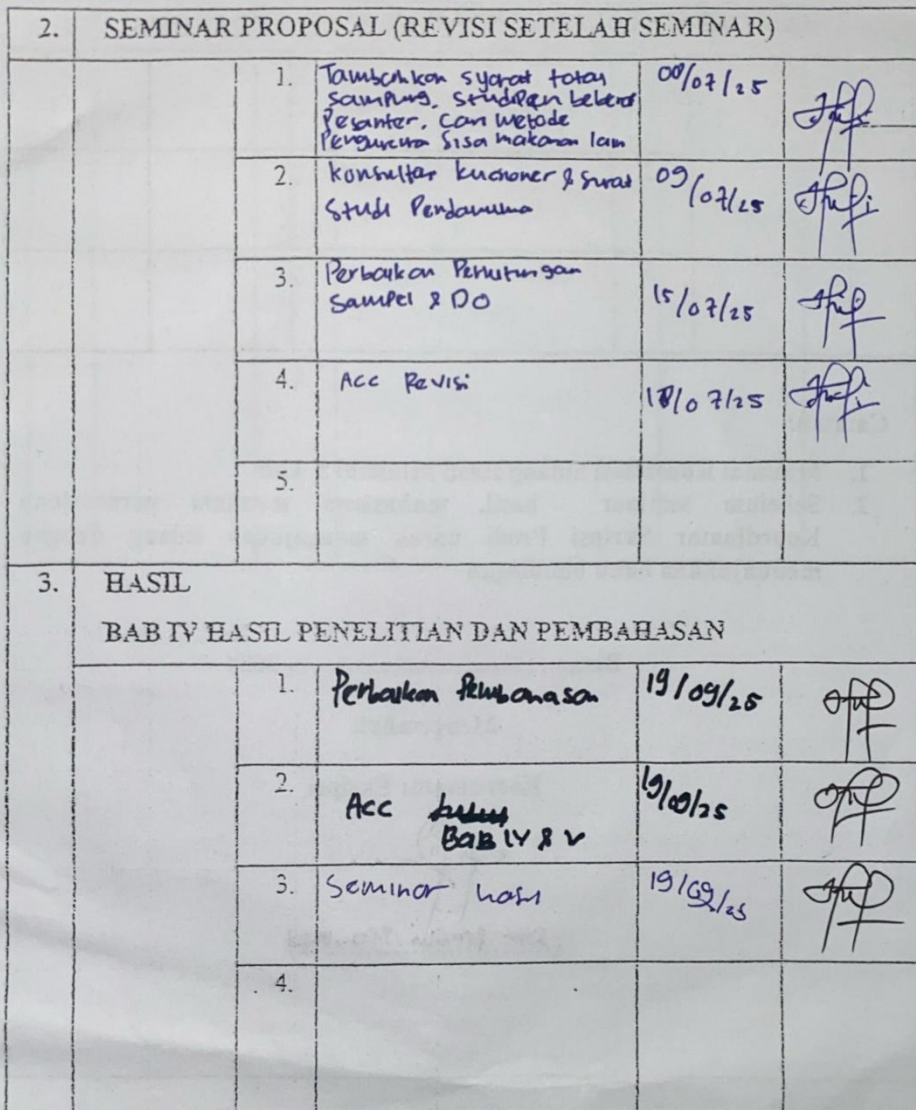 2. SEMINAR PROPOSAL (REVISI SETELAH SEMINAR)
1. Tambahkan syarat total
sampling,
Pesantren, Cari metode
sisa makanan lain
/07/25
2. Konsultasi kuesioner & surat
Studi Pendahuluan
09/07/25
3. Perbaikan Perhitungan
Sampel & DO
15/07/25
4. Acc Revisi
/07/25
5.
3. HASIL
BAB IV HASIL PENELITIAN DAN PEMBAHASAN
1. Perbaikan Pembahasan
19/09/25
2. Acc
BAB IV & V
19/09/25
3. Seminar hasil
19/09/25
4.